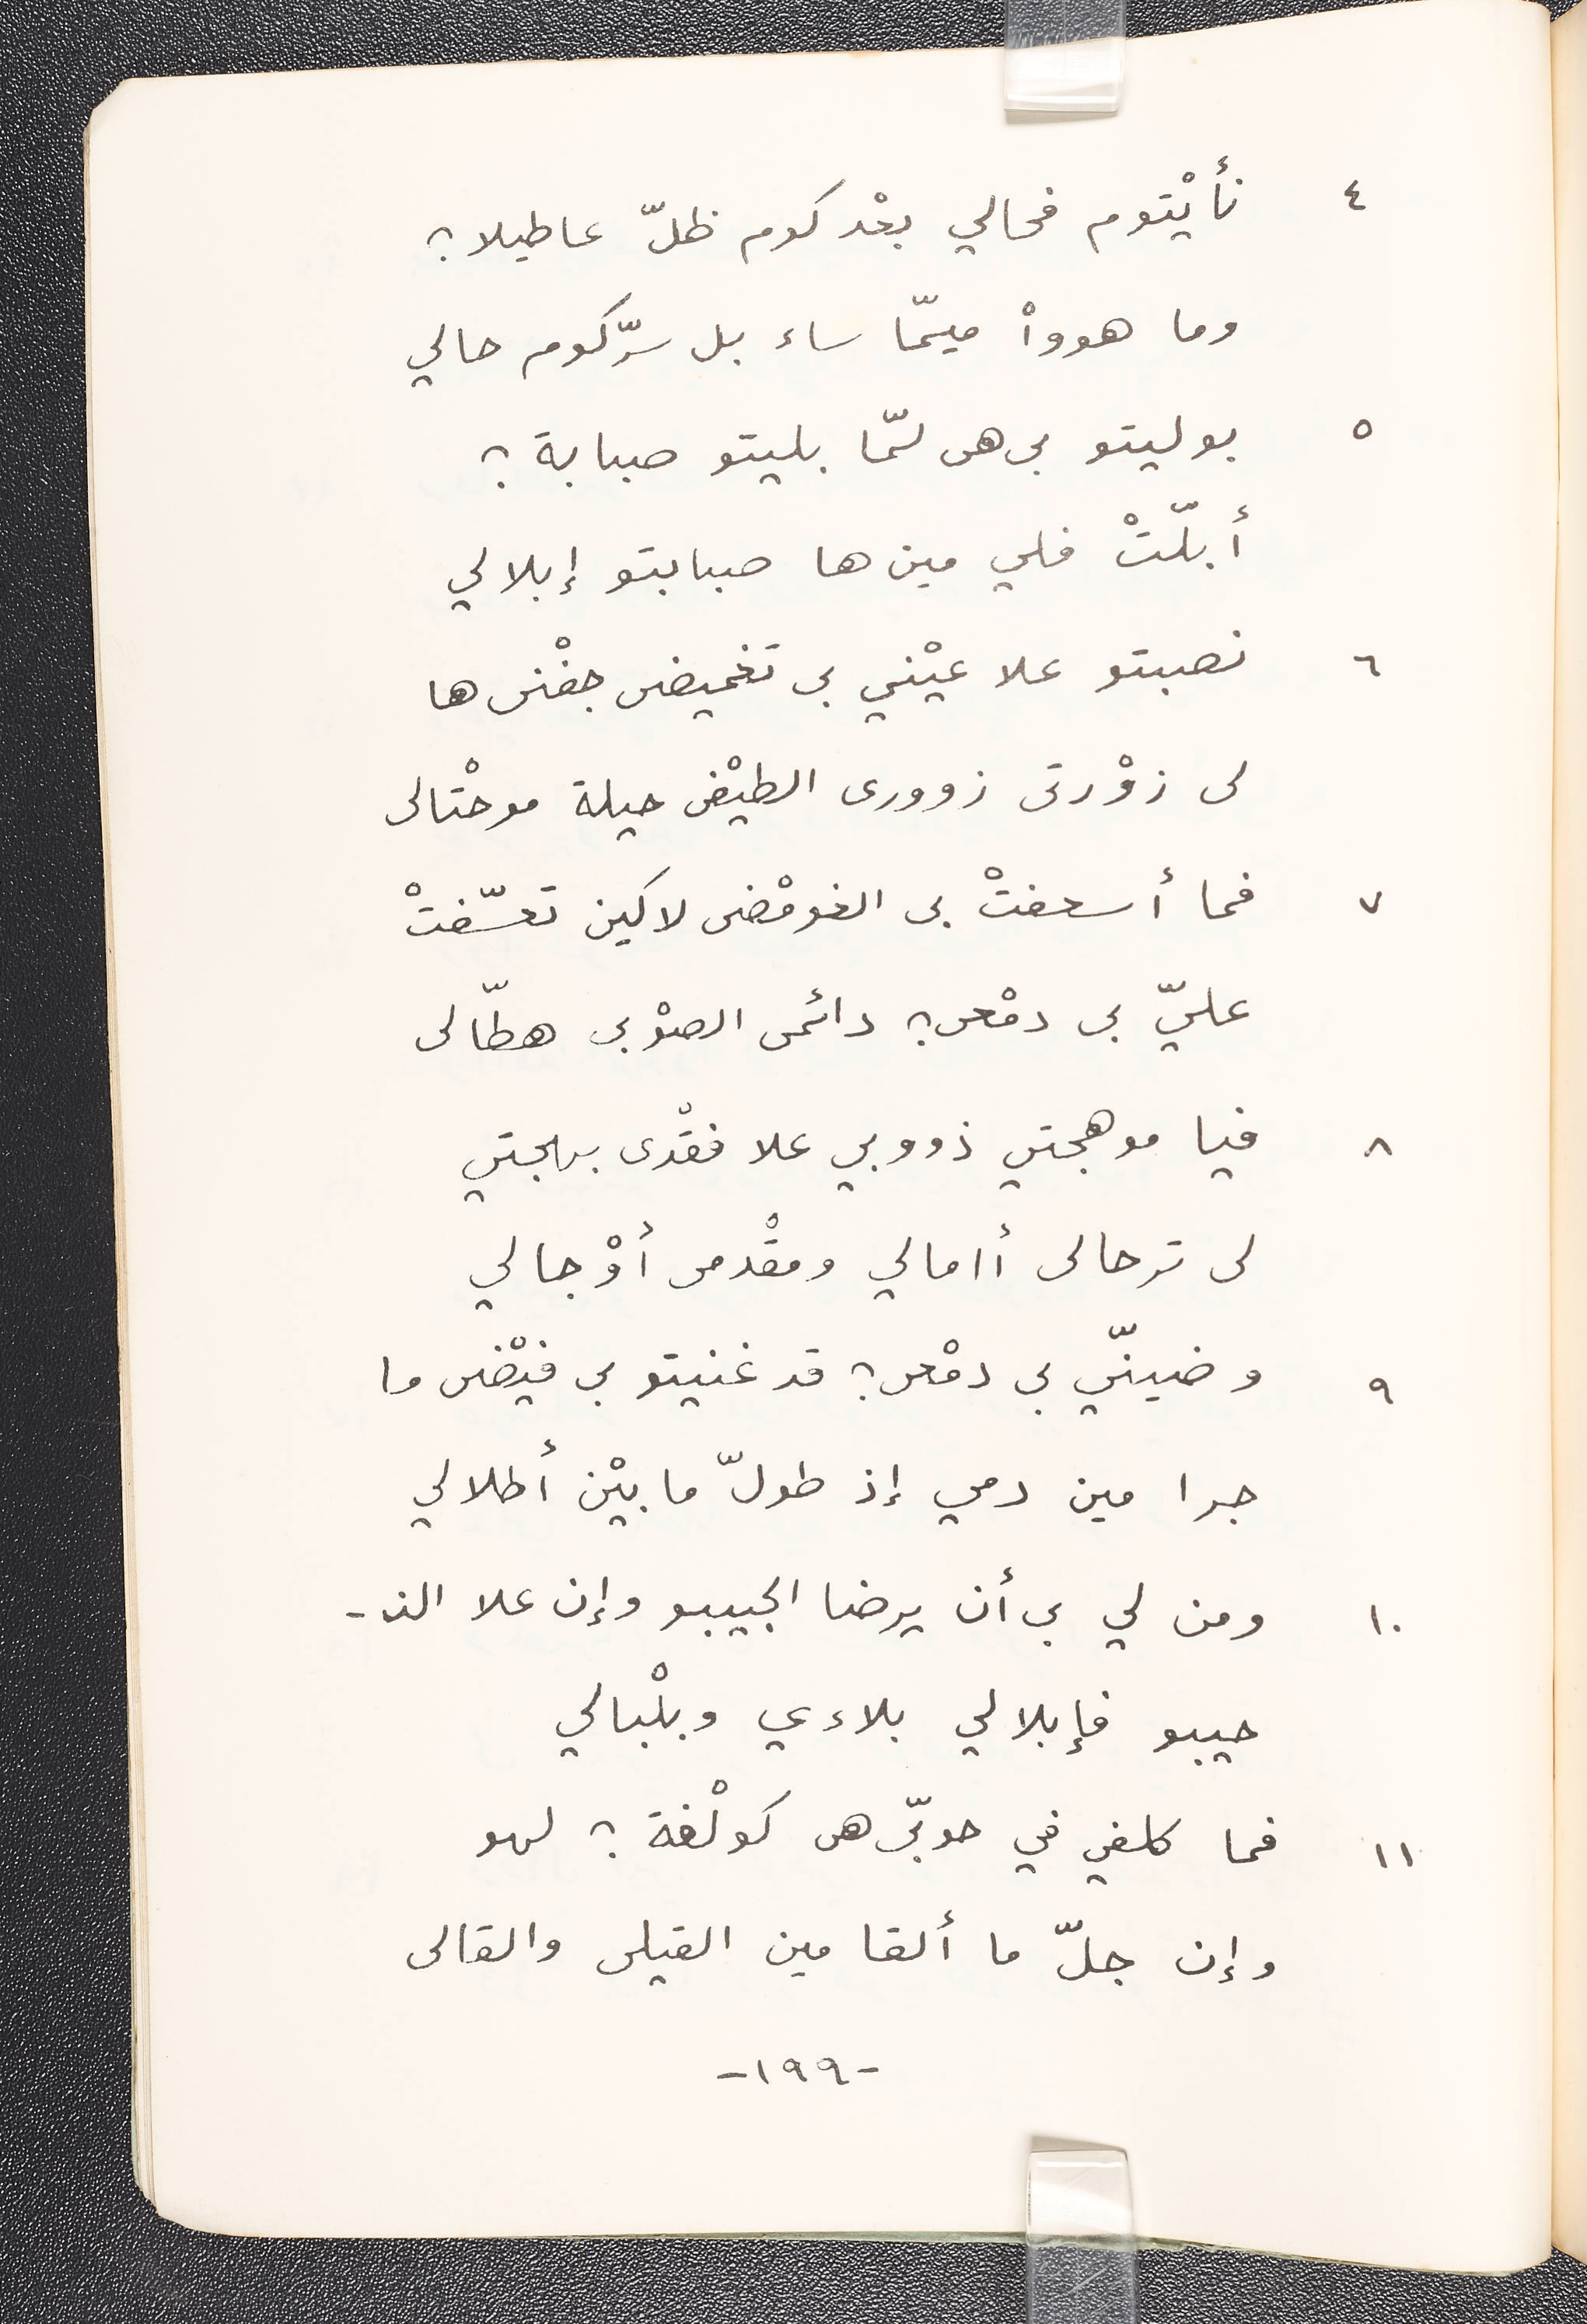 ٤ نأيْتوم فحالي بعْدكوم ظلّ عاطيلا؟
وما هووأْ ميمّا ساء بل سرّكوم حالي
٥ بوليتو بى هى لمّا بليتو صبابة؟
أبلّتْ فلي مين ها صبابتو إبلالي
٦ نصبتو علا عيْني بى تغميضى جفْنى ها
لى زوْرتى زوورى الطيْفى حيلة موحْتالى
٧ فما أسعفتْ بى الغومْضى لاكين تعسّفتْ
عليّ بى دمْعى؟ دائمى الصوْبى هطّالى
٨ فيا موهجتي ذووبي علا فقْدى بهجتي
لى ترحالى أامالي ومقْدمى أوْجالي
٩ وضينّي بى دمْعى؟ قد غنيتو بى فيْضى ما
جرا مين دمي إذ طولّ ما بيْن أطلالي
١٠ ومن لي بى أن يرضا الحبيبو وإن علا النـ-
حيبو فإبلالي بلاءي وبلْبالي
١١ فما كلفي في حوبّى هى كولْفة؟ لهو
وإن جلّ ما ألقا مين القيلى والقالى
-١٩٩-